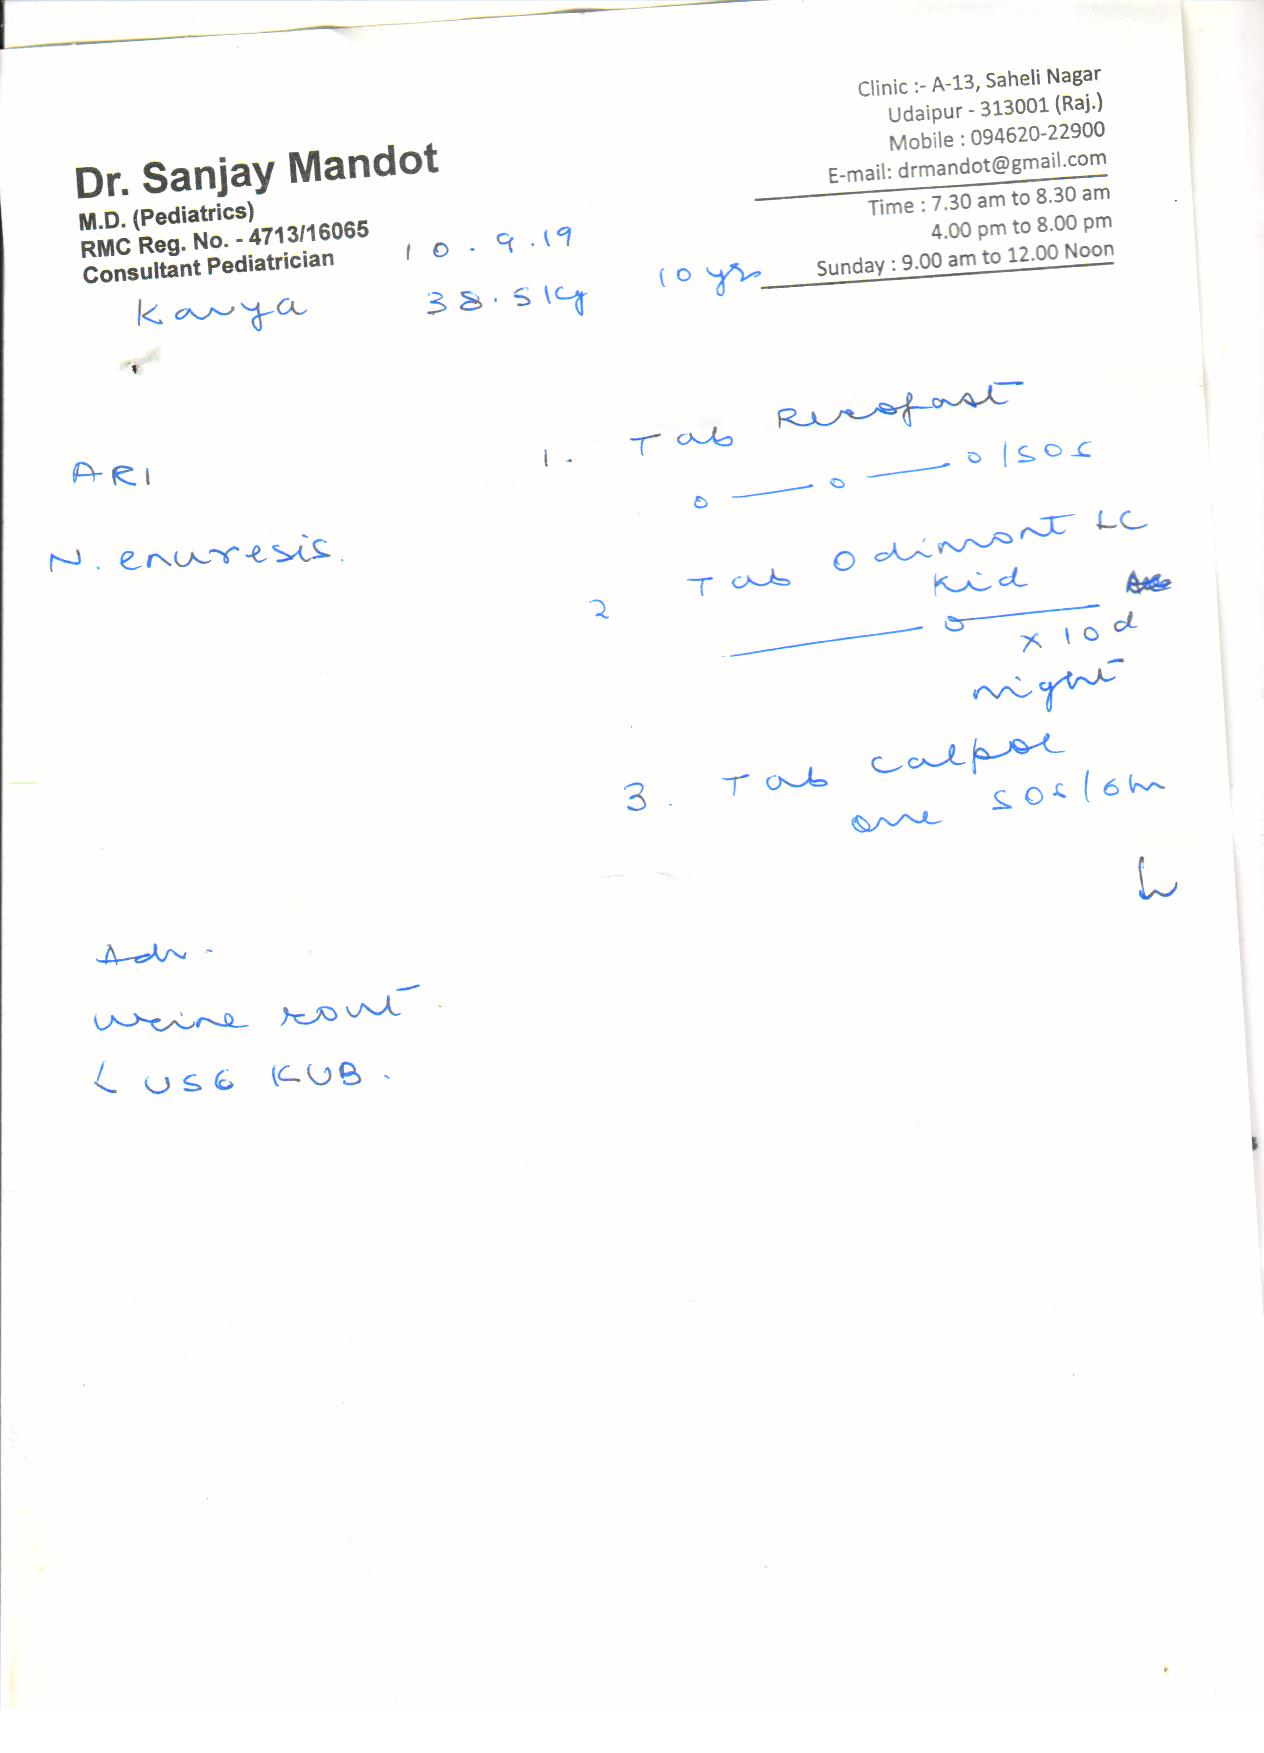 Clinic :- A-13, Saheli Nagar
Udaipur - 313001 (Raj.)
Mobile : 094620-22900
E-mail: drmandot@gmail.com
Time : 7.30 am to 8.30 am
4.00 pm to 8.00 pm
Sunday : 9.00 am to 12.00 Noon
Dr. Sanjay Mandot
M.D. (Pediatrics)
RMC Reg. No. - 4713/16065
Consultant Pediatrician
10.9.19
Kavya 38.5 kg 10 yrs
ARI
N. enuresis.
1. Tab
0 — 0 — 0 / SOS
2 Tab Odimont LC
Kid
— 0 — x 10 d
night
3. Tab Calpol
one SOS / 6h
Adv.
Urine rout
USG KUB.